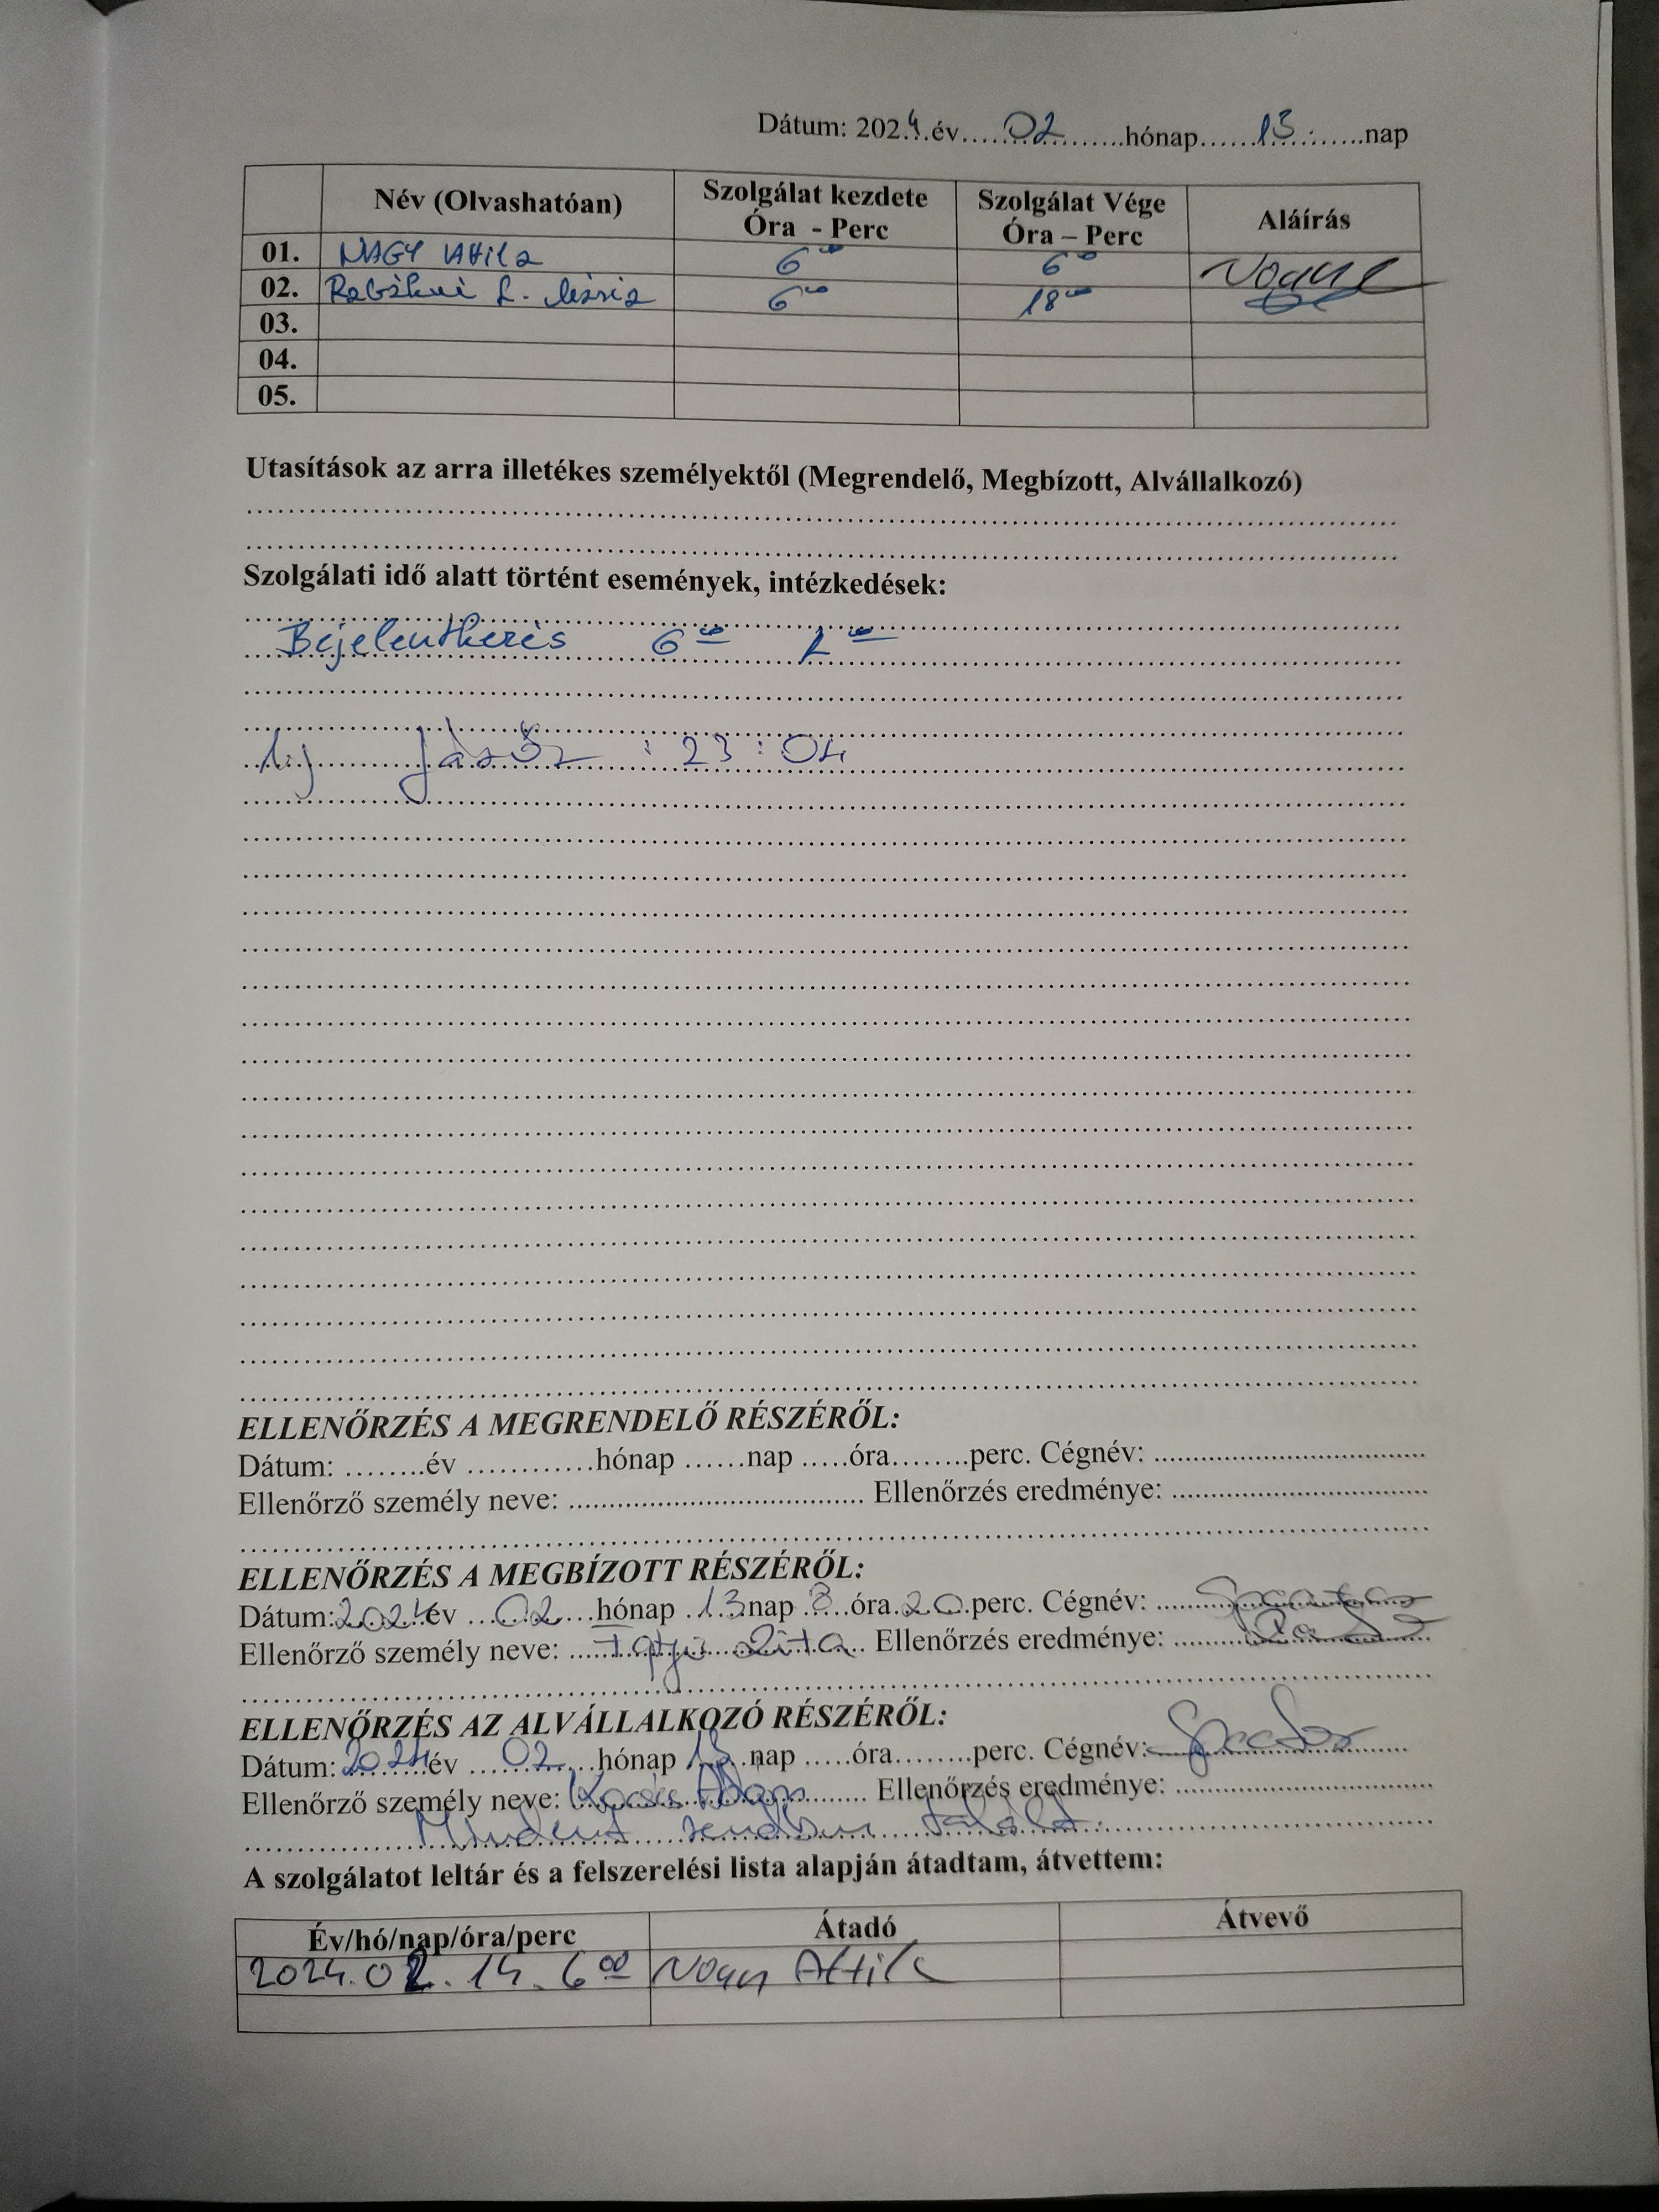 Dátum: 2024.év.....02.........hónap......13.:......nap
Név (Olvashatóan) Szolgálat kezdete Óra - Perc Szolgálat Vége Óra – Perc Aláírás
01. NAGY Attila 6 00 6 00
02. L. Mária 6 00 18 00
03.
04.
05.
Utasítások az arra illetékes személyektől (Megrendelő, Megbízott, Alvállalkozó)
Szolgálati idő alatt történt események, intézkedések:
Bejelentkezés 6 00
: 23 : 04
ELLENŐRZÉS A MEGRENDELŐ RÉSZÉRŐL:
Dátum: ........év ............hónap ......nap .....óra........perc. Cégnév: ..........
Ellenőrző személy neve: .......... Ellenőrzés eredménye: ..........
ELLENŐRZÉS A MEGBÍZOTT RÉSZÉRŐL:
Dátum: 2024 év ...02....hónap ..13.nap 8...óra.20..perc. Cégnév: ..........
Ellenőrző személy neve: ..... Zita.. Ellenőrzés eredménye: ..........
ELLENŐRZÉS AZ ALVÁLLALKOZÓ RÉSZÉRŐL:
Dátum: 2024 év ...02....hónap 13..nap .....óra........perc. Cégnév:..........
Ellenőrző személy neve: Kocsis Ádám.......... Ellenőrzés eredménye: ..........
Mindent rendben talált.
A szolgálatot leltár és a felszerelési lista alapján átadtam, átvettem:
Év/hó/nap/óra/perc Átadó Átvevő
2024.02.14. 6 00 Nagy Attila